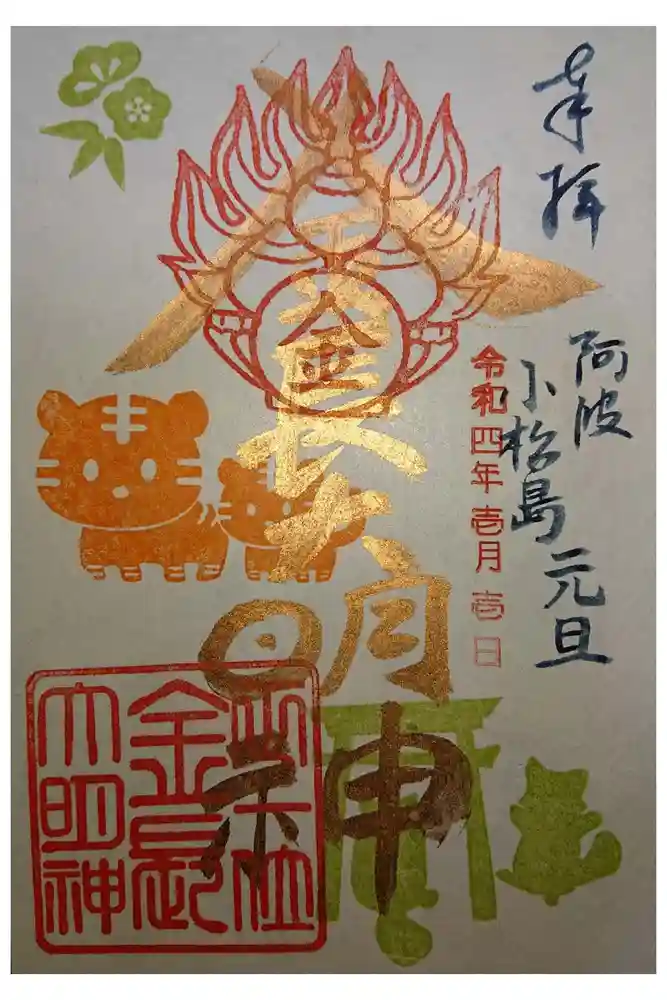 奉拝
阿波
小松島
元旦
令和四年壱月壱日
金長大明神
正一位
金長
大明神